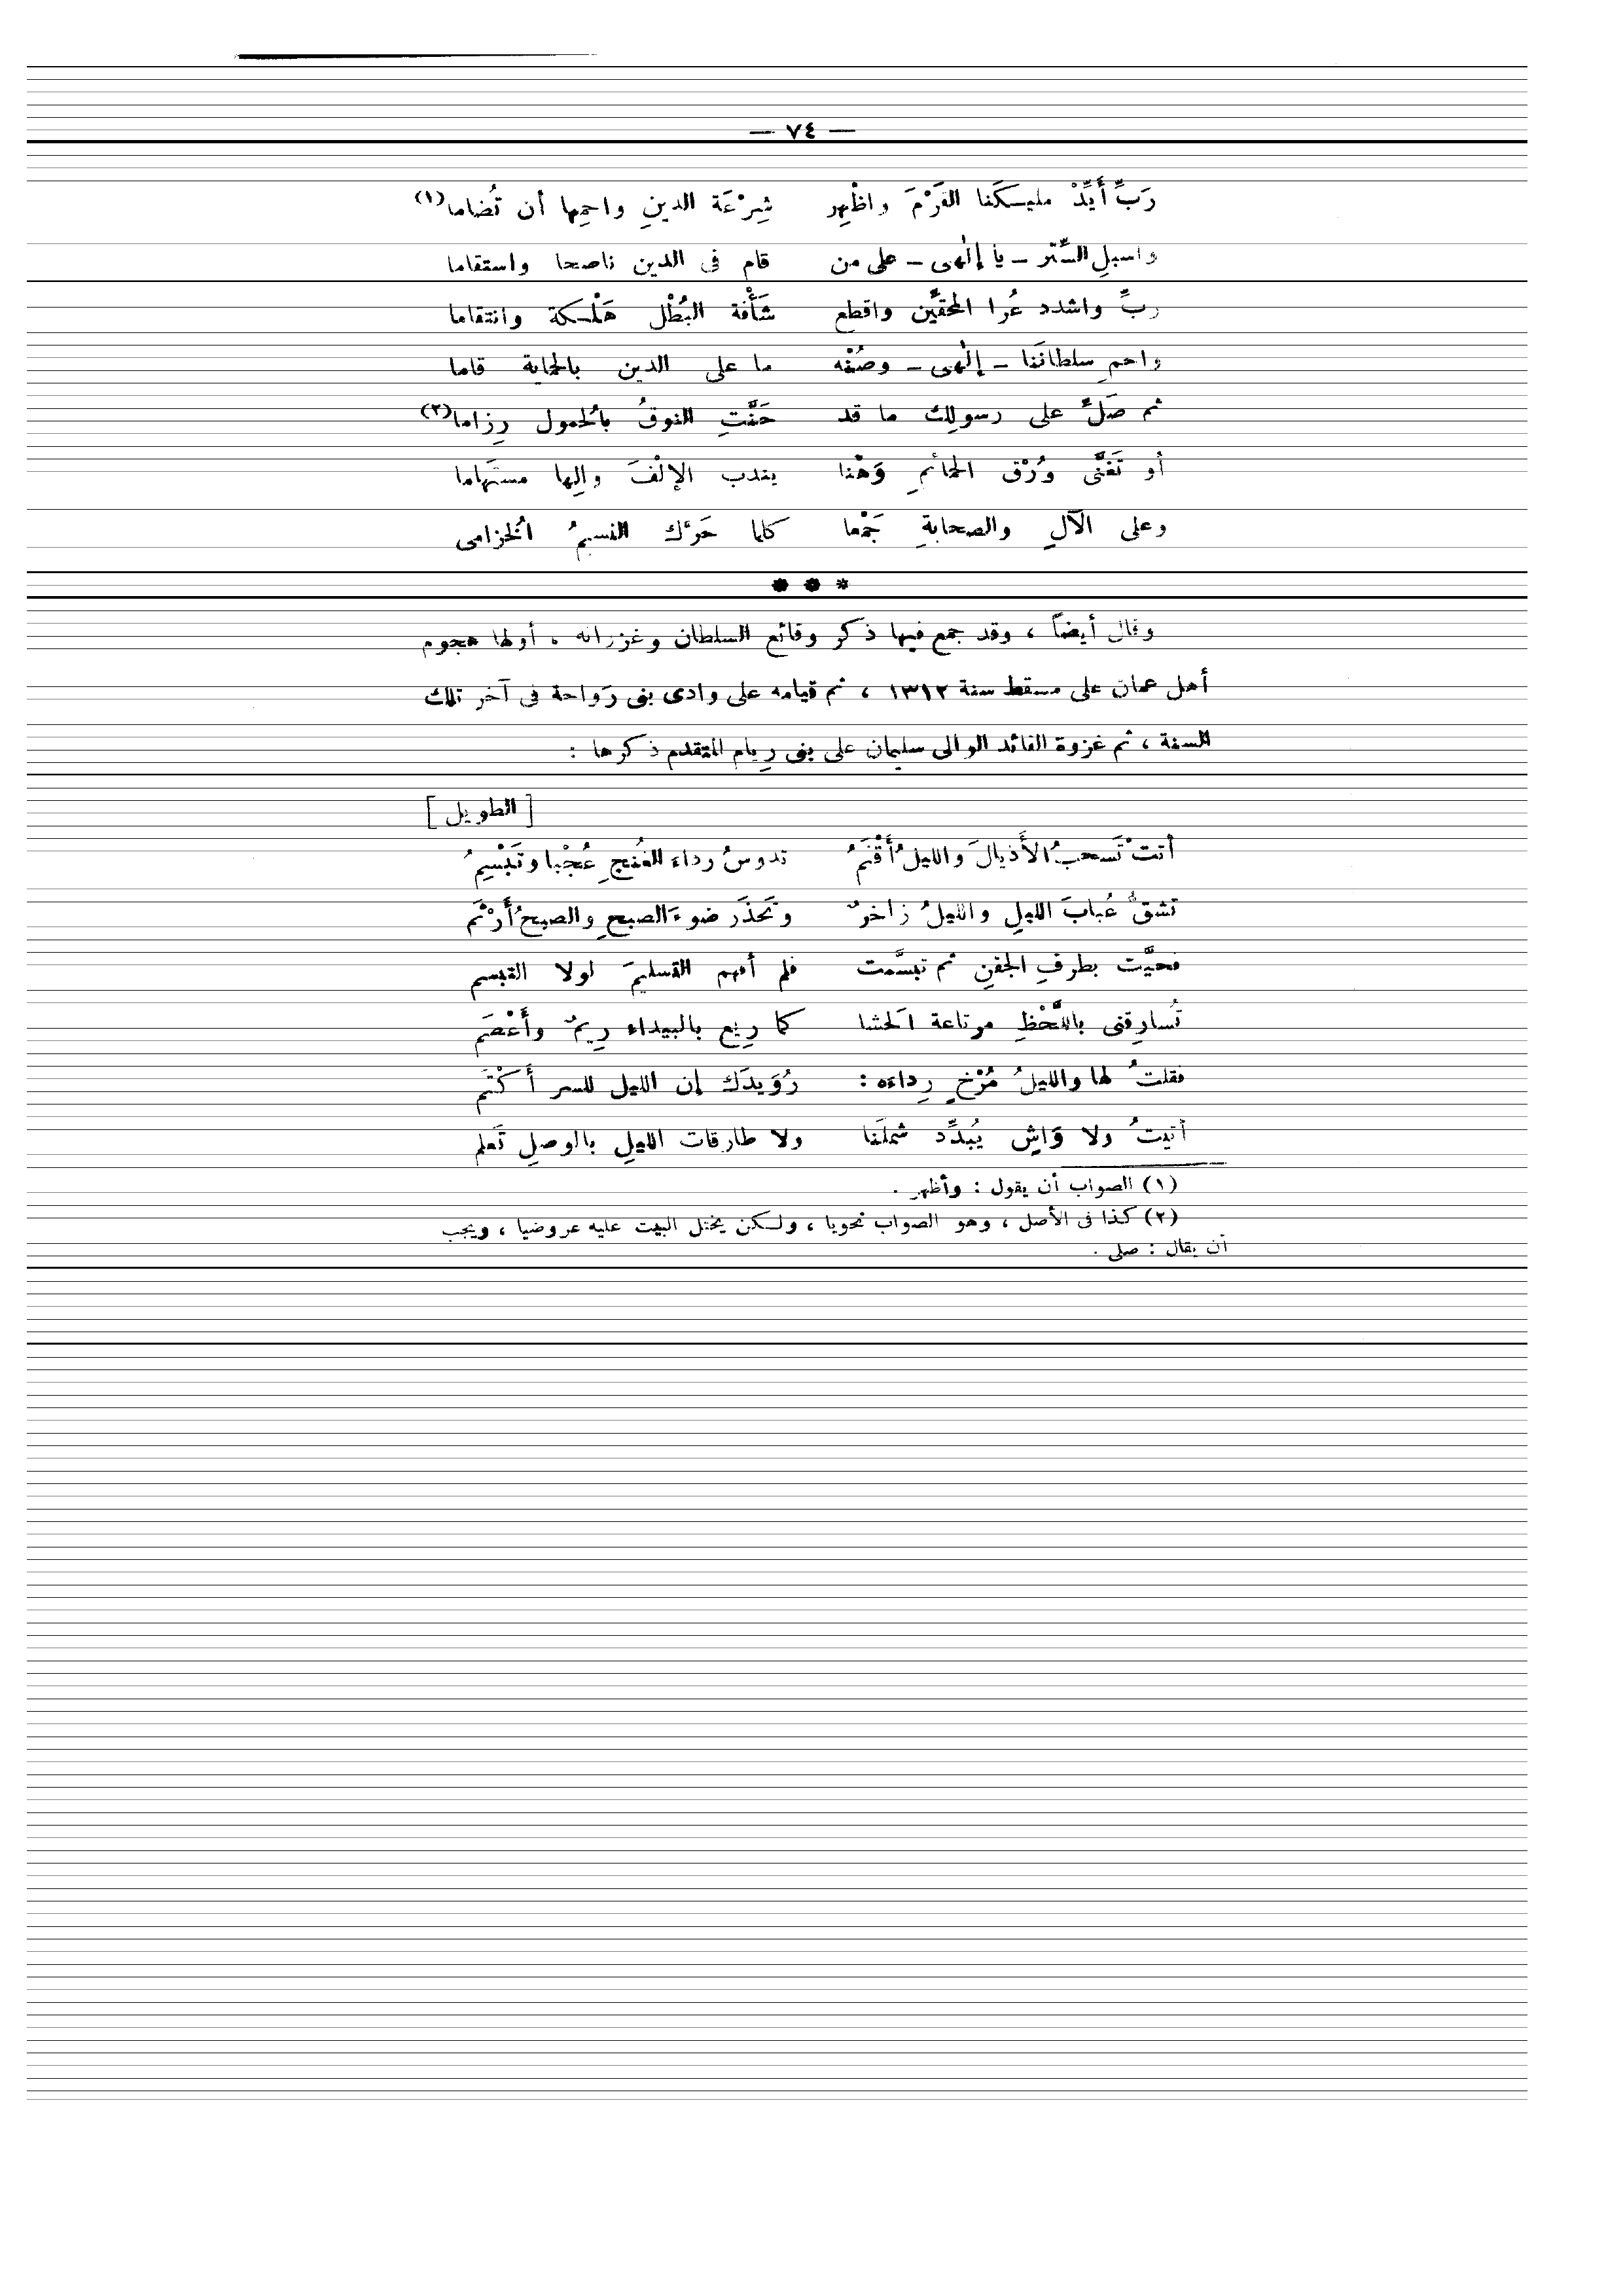 — ٧٤ —
رَبِّ أَيِّدْ مليكَنا القَرْمَ واظْهِر شِرْعَة الدينِ واحمِها أن تُضاما(١)
واسبلِ السِّتر – يا إلٰهى – على من قام فى الدين ناصحا واستقاما
ربِّ واشدد عُرا المحقِّين واقطع شَأْفة البُطْل هَلْكة وانتقاما
واحمِ سلطانَنا – إلٰهى – وصُنْه ما على الدين بالحماية قاما
ثم صَلِّ على رسولِك ما قد حَنَّتِ النوقُ بالحُمول رِزاما(٢)
أو تَغَنَّى وُرْق الحمائمِ وَهْنا يندب الإلْفَ والِها مستَهاما
وعلى الآلِ والصحابةِ جَمْعا كلما حَرَّك النسيمُ الُخزامى
* * *
وقال أيضاً ، وقد جمع فيها ذكر وقائع السلطان وغزواته . أولها هجوم
أهل عمان على مسقط سنة ١٣١٢ ، ثم قيامه على وادى بنى رَواحة فى آخر تلك
السنة ، ثم غزوة القائد الوالى سليمان على بنى رِيام المتقدم ذكرها :
[ الطويل ]
أتتْ تَسحبُ الأَذيالَ والليلُ أَقْتَمُ تدوسُ رداء الغُنجِ عُجْبا وتَبْسِمُ
تشقُّ عُبابَ الليلِ والليلُ زاخرٌ وتَحذَر ضوءَ الصبحِ والصبحُ أَرْثَم
فحيَّت بطرفِ الجفنِ ثم تبسَّمت فلم أفهم التسليمَ لولا التبسم
تُسارِقنى باللَّحْظِ مرتاعة الَحشا كما رِيع بالبيداء رِيمٌ وأَعْصَم
فقلتُ لها والليلُ مُرْخٍ رِداءه : رُوَيدَك إن الليل للسر أَكْتَم
أتيتُ ولا وَاشٍ يُبدِّد شملَنا ولا طارقات الليلِ بالوصلِ تَعلم
(١) الصواب أن يقول : وأظهر .
(٢) كذا فى الأصل ، وهو الصواب نحويا ، ولكن يختل البيت عليه عروضيا ، ويجب
أن يقال : صلى .